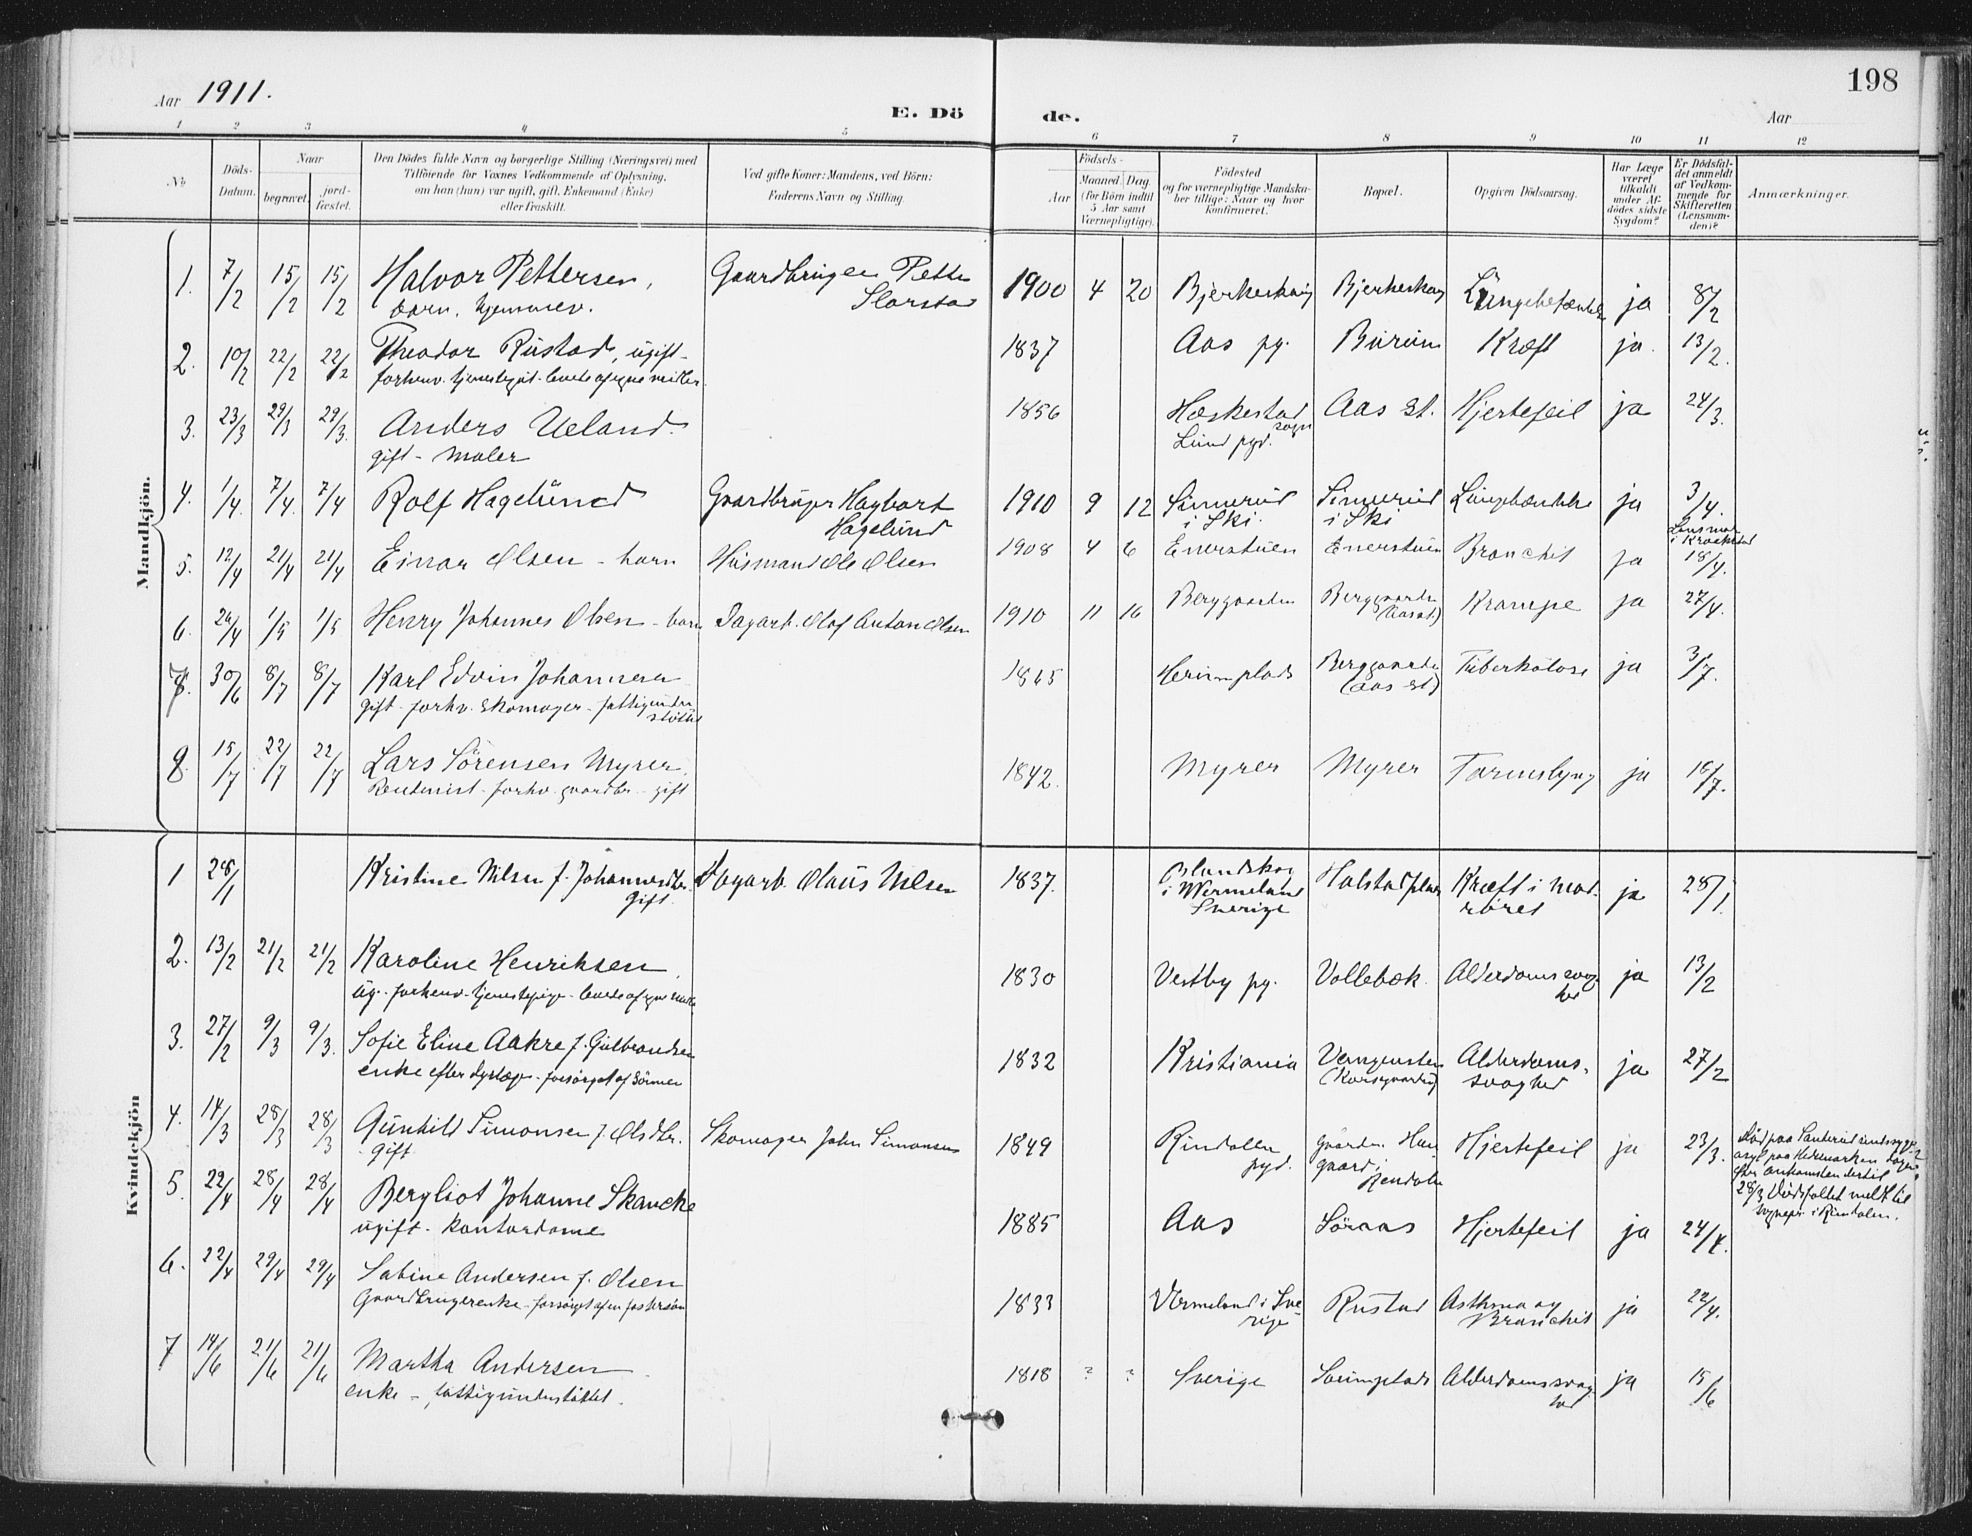 198
Aar 1911.
E. Döde.
Aar
1 2 3 4 5 6 7 8 9 10 11 12
No
Döds-Datum.
Naar
begravet.
jord-fæstet.
Den Dödes fulde Navn og borgerlige Stilling (Næringsvei) med
Tilföiende for Voxnes Vedkommende af Oplysning,
om han (hun) var ugift, gift, Enkemand (Enke)
eller fraskilt.
Ved gifte Koner: Mandens, ved Börn:
Faderens Navn og Stilling.
Födsels-
Aar
Maaned. Dag.
(for Börn indtil
5 Aar samt
Værnepligtige).
Födested
og for værnepligtige Mandska-
ber tillige: Naar og hvor
konfirmeret.
Bopæl.
Opgiven Dödsaarsag.
Har Læge
været
tilkaldt
under Af-
dödes sidste
Sygdom?
Er Dödsfal-
det anmeldt
af Vedkom-
mende for
Skifteretten
(Lensman-
den)?
Anmærkninger.
Mandkjön.
1. 7/2 15/2 15/2 Halvor Pettersen, Gaardbruger Petter 1900 4 20 Bjerkeskaug Bjerkeskog Lungebetændelse ja 8/2
barn, hjemmev.
2. 10/2 22/2 22/2 Theodor Rustad, ugift- 1837 Aas pg. Burum Kræft ja. 13/2.
forhenv. tjenestegut - levede af egne midler.
3. 23/3 29/3 29/3. Anders Ueland. 1856 Heskestad sogn Aas st. Hjertefeil ja 24/3.
gift - maler Lund pgd.
4. 1/4. 7/4. 7/4 Rolf Hagelund Gaardbruger Hagbart 1910 9 12 Simerud Simerud ja 3/4.
Hagelund i Ski. i Ski
5. 12/4 21/4 21/4 Einar Olsen - barn Husmand Ole Olsen 1908 4 6 Enerstuen Enerstuen Bronchit ja 18/4.
6. 1/5 1/5 Henry Johannes Olsen - barn Dagarb. Olaf Anton Olsen 1910 11 16 Berggaarden Berggaarden Krampe ja 27/4.
(Aas st)
7. 30/6 8/7 8/7 Karl Edvin Johannsen 1865 Berggaarden Tuberkulose ja 3/7.
gift - forhv. skomager - fattigunder- (Aas st)
støttet
8. 15/7 22/7 22/7 Lars Sörensen Myrer. 1842. Myrer Myrer ja 16/7.
Rentenist - forhv. gaardbr. - gift
Kvindekjön
1 28/1 Kristine Nilsen f. Johannesdtr. Dagarb. Olaus Nilsen 1837. Halstadplads Kræft i mad- ja 28/1.
gift. i Wermeland røret
Sverige
2. 13/2 21/2 21/2 Karoline Henriksen 1830 Vestby pg. Vollebæk. Alderdomssvag- ja 13/2
ug. - forhenv. tjenestepige - levede af egne midler hed
3. 27/2 9/3 9/3. Sofie Eline Aakre f. Gulbrandsen 1832 Kristiania Alderdoms- ja 27/2
enke efter dyrlæge - forsørget af sønner svaghed
4. 14/3 28/3 28/3 Gunhild Simonsen f. Olsdtr. Skomager John Simonsen 1849 Rindalen Hjertefeil ja 23/3.
gift pgd.
5. 22/4 28/4 28/4 Bergliot Johanne Skancke 1885 Aas Söraas Hjertefeil ja 24/4.
ugift - kontordame
6. 22/4 29/4 29/4 Sabine Andersen f. Olsen 1833 Vermeland i Sve- Rustad Asthma og ja 22/4.
Gaardbrugerenke - forsørget af en fostersøn rige Bronchit
7 14/6 21/6 21/6 Martha Andersen 1818 ? ? Sverige Alderdomssvag- ja 15/6
enke - fattigunderstøttet. hed